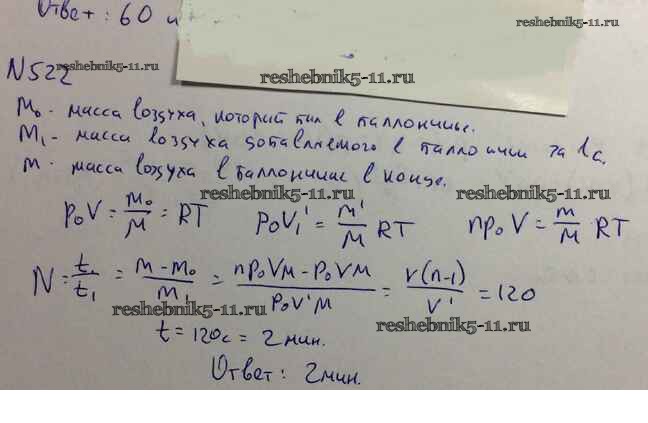 Ответ: 60
reshebnik5-11.ru
N522
reshebnik5-11.ru
m₀ - масса воздуха, который был в баллончике.
m₁ - масса воздуха добавляемого в баллончик за 1 с.
m - масса воздуха в баллончике в конце.
reshebnik5-11.ru reshebnik5-11.ru
p₀V = m₀/M = RT p₀V₁' = m'/M RT np₀V = m/M RT
N = t/t₁ = (m - m₀)/m₁ = (np₀VM - p₀VM)/(p₀V'M) = V(n-1)/V' = 120
reshebnik5-11.ru reshebnik5-11.ru
t = 120с = 2 мин.
Ответ: 2 мин.